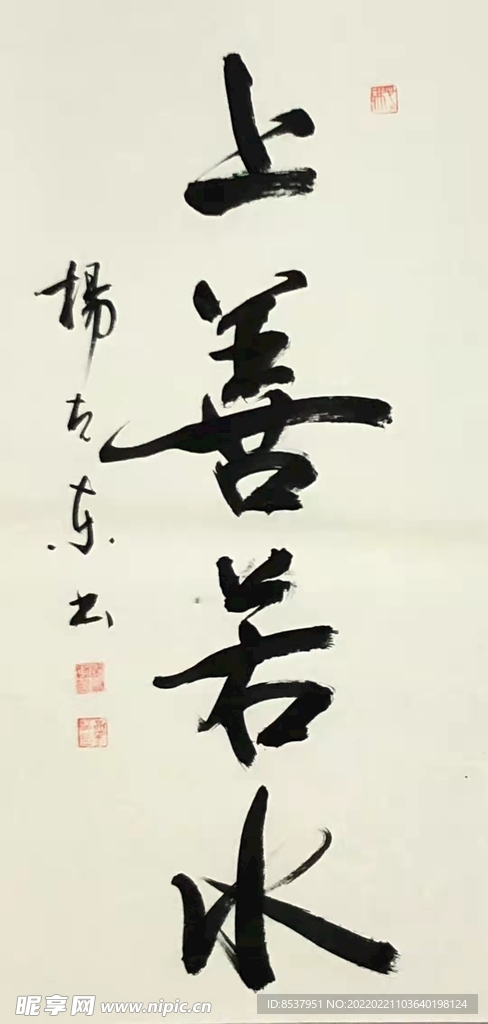 上善若水
楊东书
昵享网 www.nipic.cn
ID:8537951 NO:20220221103640198124